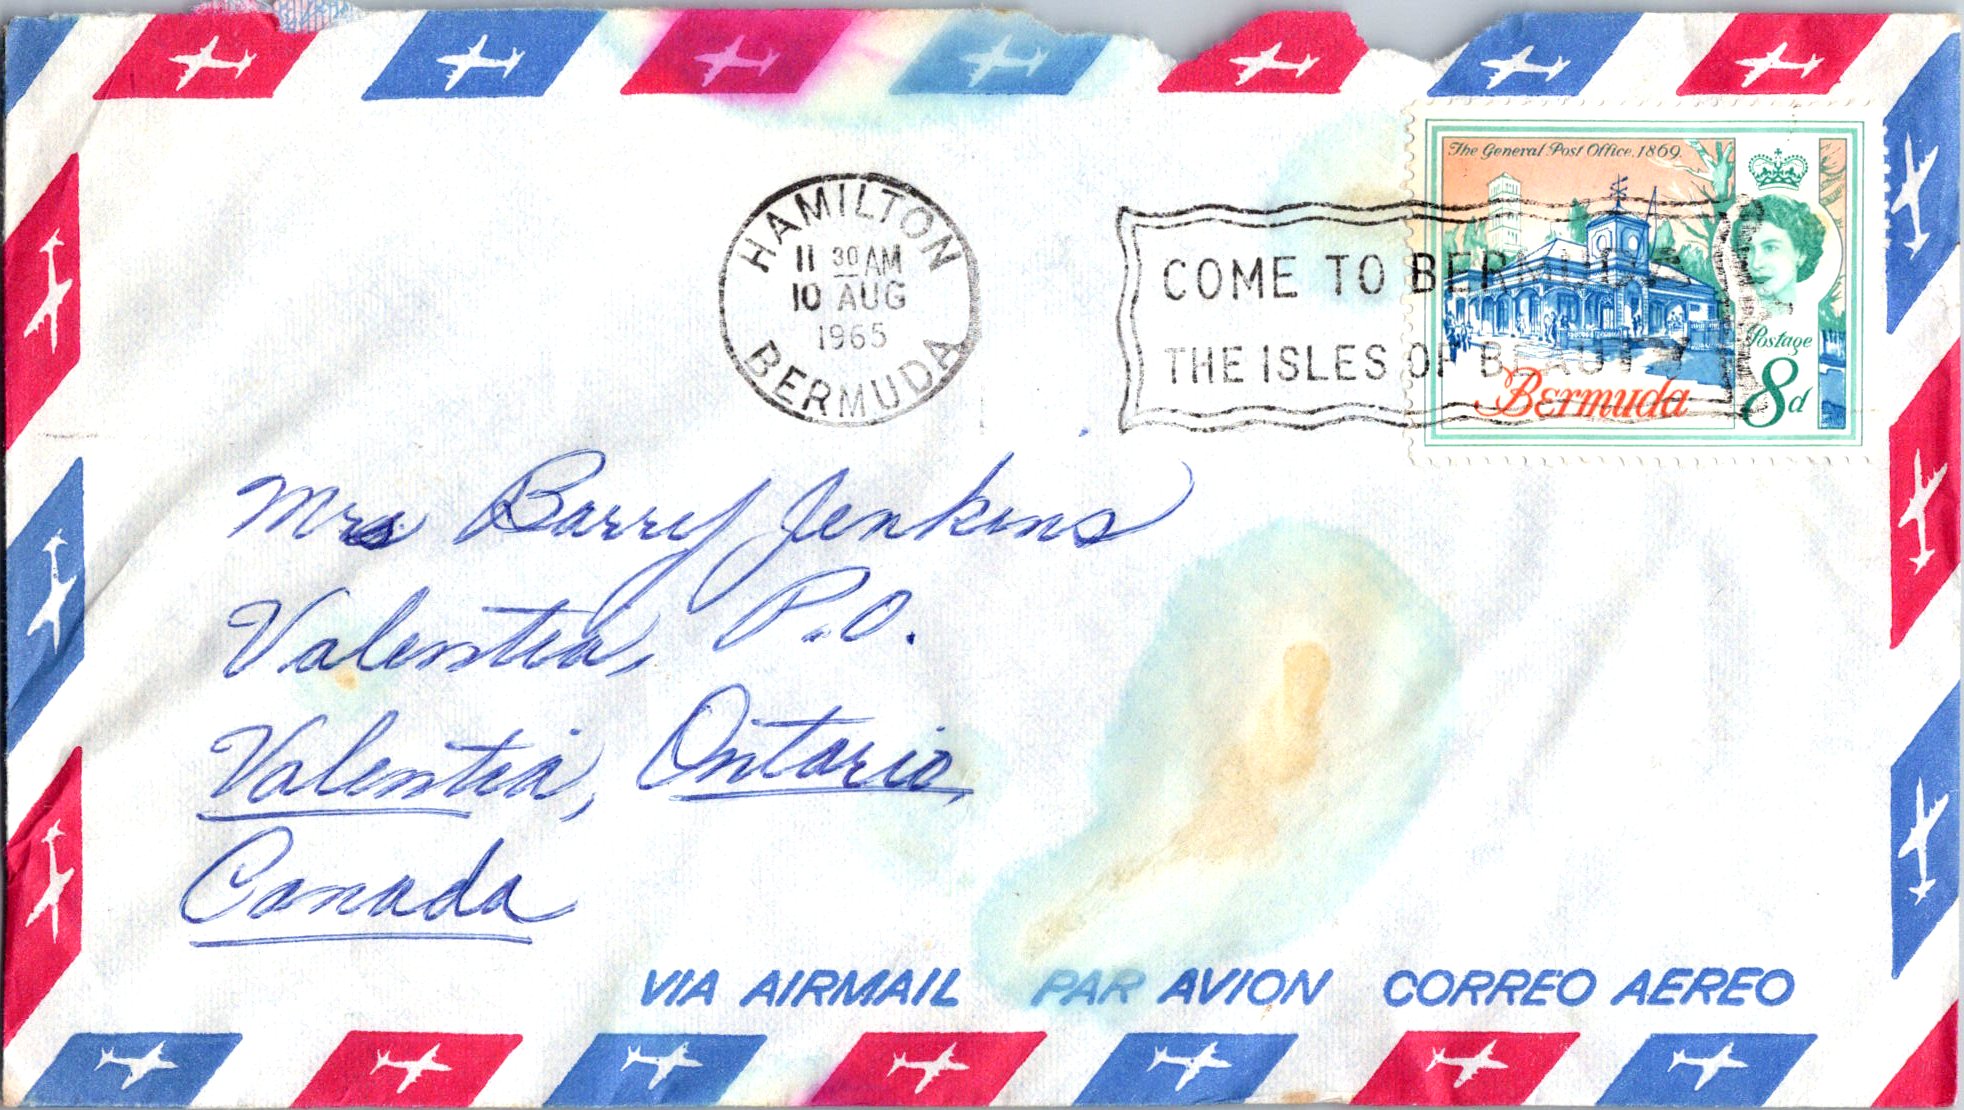 The General Post Office, 1869.
HAMILTON
11 30 AM
10 AUG
1965
BERMUDA
COME TO BERMUDA
THE ISLES OF BEAUTY
Postage
8d
Bermuda
Mrs Barry Jenkins
Valentia, P.O.
Valentia, Ontario,
Canada
VIA AIRMAIL PAR AVION CORREO AEREO